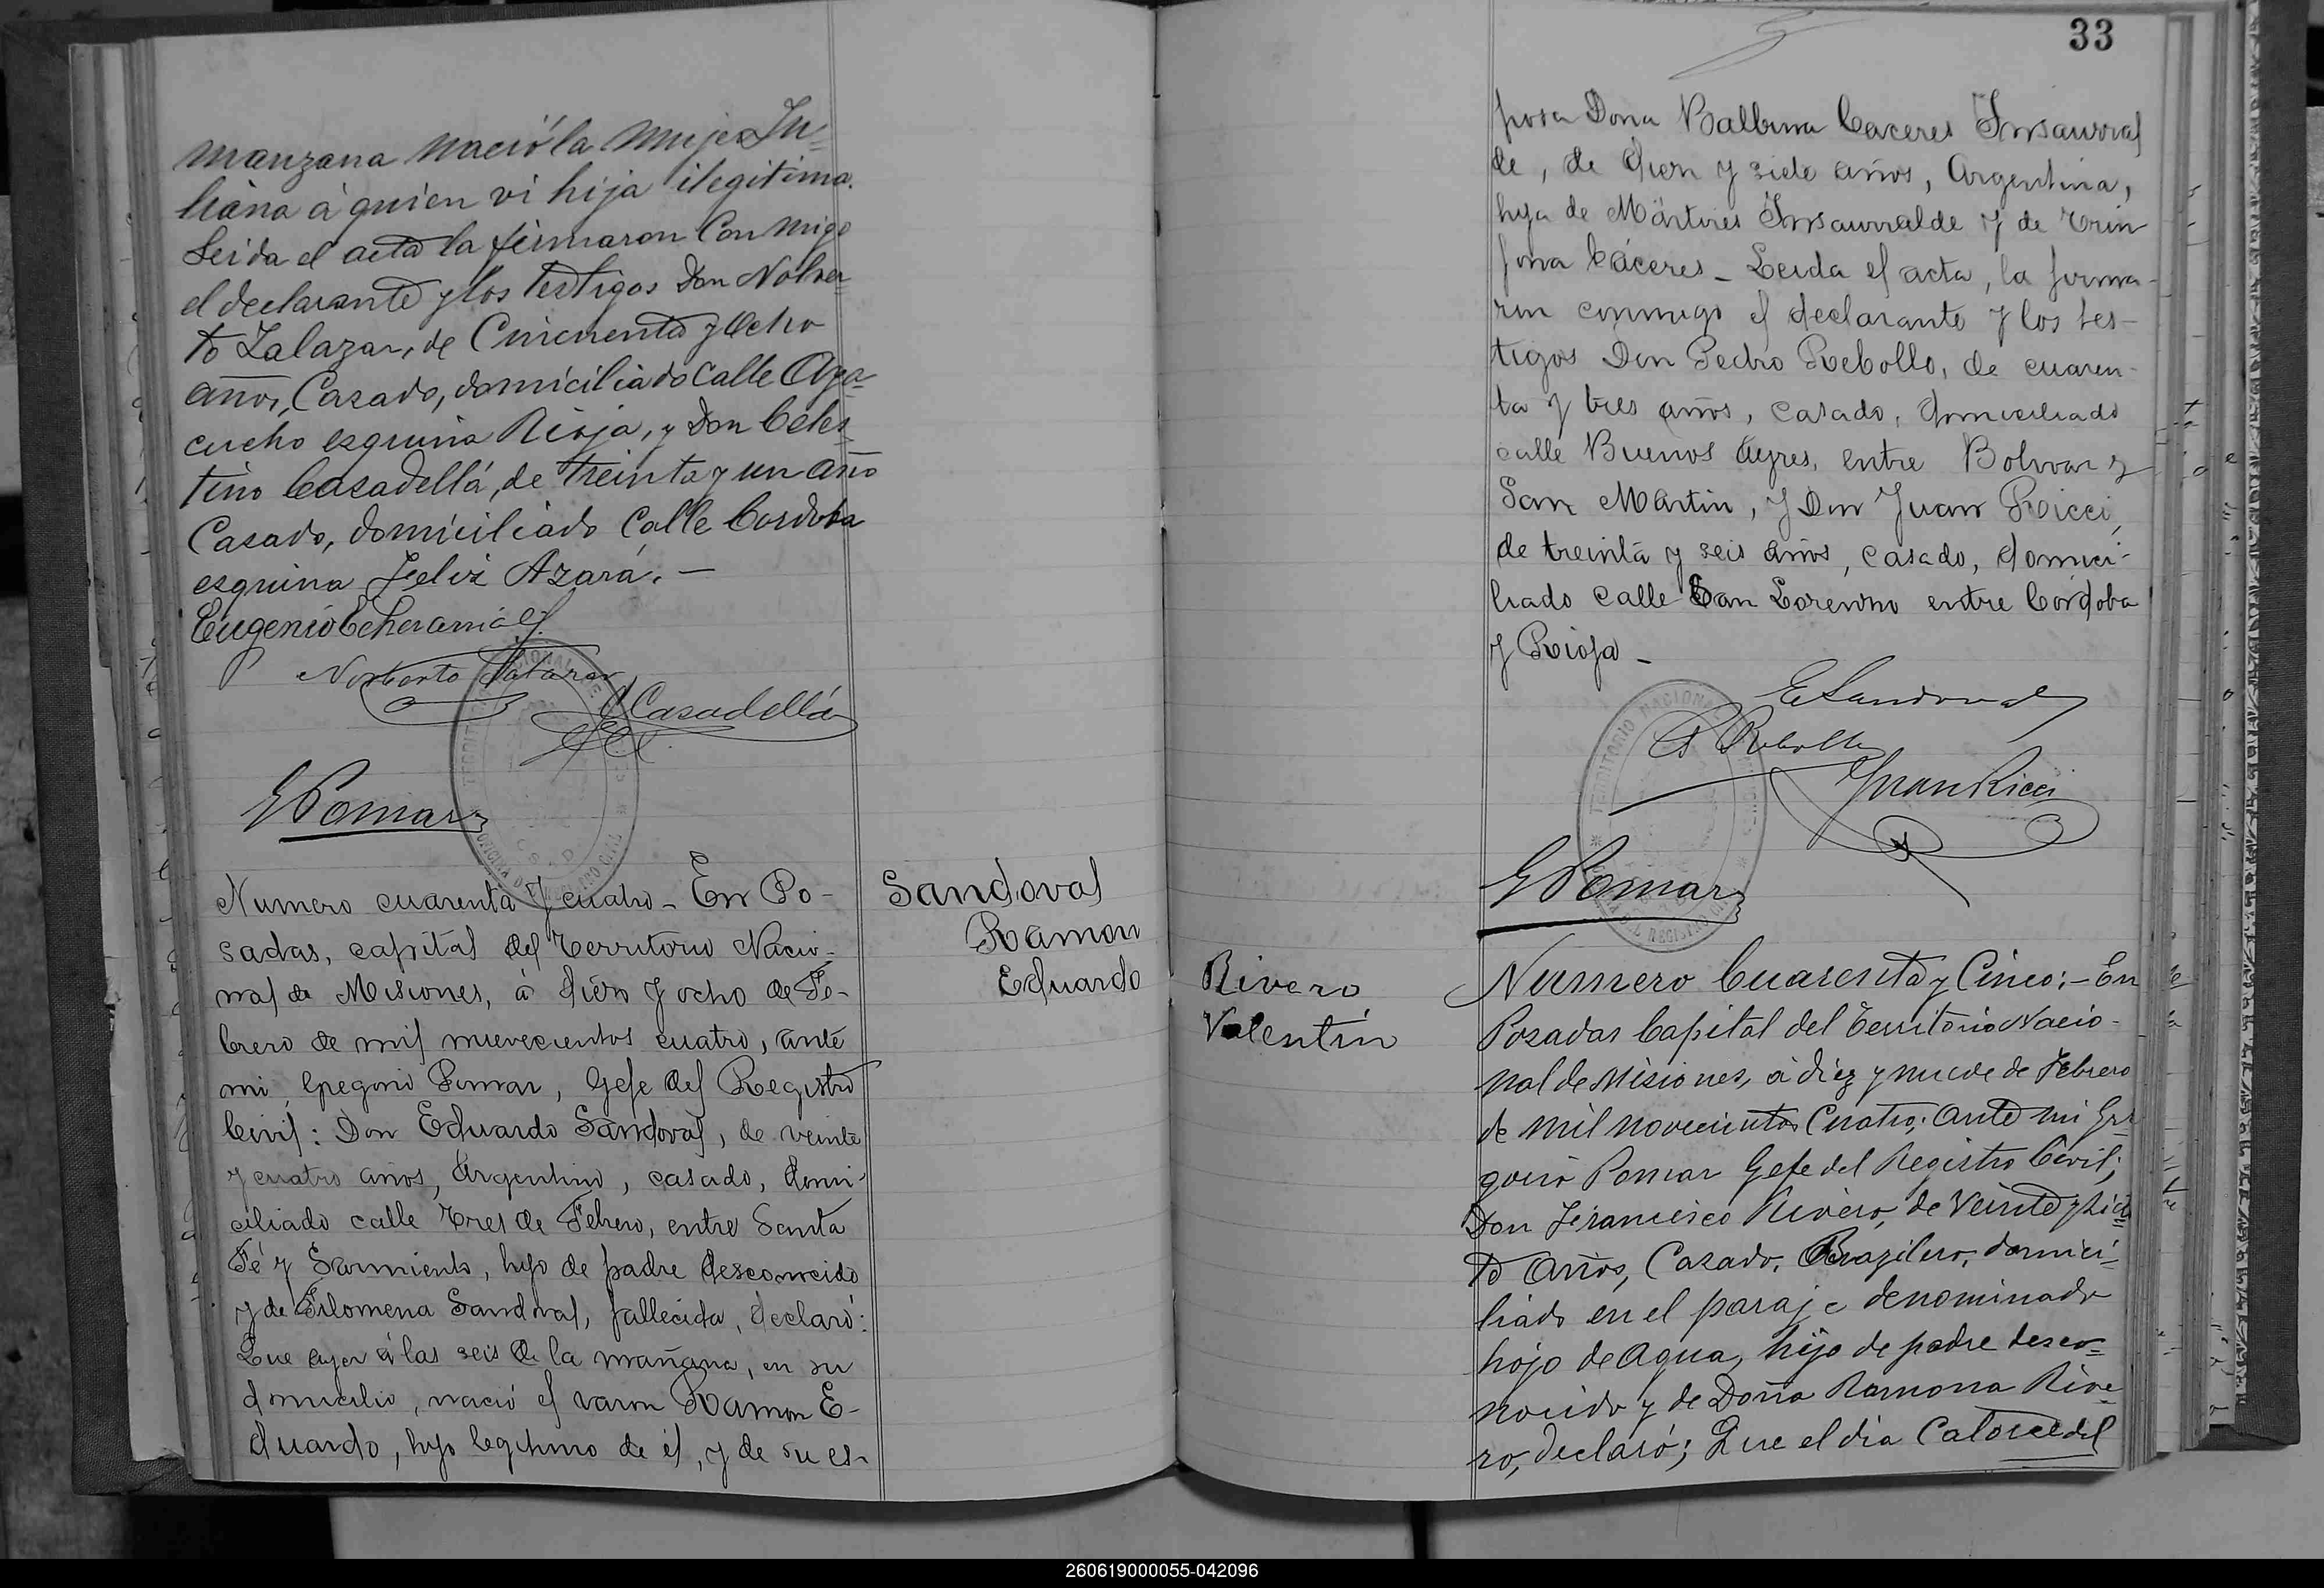 manzana nació la mujer Ju=
liana á quien vi hija ilegitima.
Leida el acta la firmaron Conmigo
el declarante y los testigos Don Nolver
to Zalazar, de Cincuenta y Ocho
años, Casado, domiciliado Calle Aya=
cucho esquina Rioja, y Don Celes=
tino Casadellá, de treinta y un año
Casado, domiciliado Calle Cordoba
esquina Feliz Azará. —
Eugenio
Norberto Salazar
C Casadellá
G Pomar
Numero cuarenta y cuatro - En Po-
sadas, capital del Territorio Nacio-
nal de Misiones, á diez y ocho de Fe-
brero de mil nuevecientos cuatro, ante
mi, Gregorio Pomar, Gefe del Registro
Civil: Don Eduardo Sandoval, de veinte
y cuatro años, Argentino, casado, domi-
ciliado calle Tres de Febrero, entre Santa
Fé y Sarmiento, hijo de padre desconocido
y de Filomena Sandoval, fallecida, declaró:
Que ayer á las seis de la mañana, en su
domicilio, nació el varon Ramon E-
duardo, hijo legitimo de él, y de su es-
Sandoval
Ramon
Eduardo
33
posa Dona Balbina Caceres Insaurral
de, de diez y siete años, Argentina,
hija de Mártires Insaurralde y de
Cáceres - Leida el acta, la firma-
ron conmigo el declarante y los tes-
tigos Don Pedro Rebollo, de cuaren-
ta y tres años, casado, domiciliado
calle Buenos Ayres, entre Bolivar y
San Martin, y Don Juan Ricci,
de treinta y seis años, casado, domici-
liado calle San Lorenzo entre Córdoba
y Rioja -
E Sandoval
P Rebollo
Juan Ricci
G Pomar
TERRITORIO NACIONAL
Rivero
Valentín
Numero Cuarenta y Cinco; - En
Posadas Capital del Territorio Nacio-
nal de Misiones, á diez y nueve de Febrero
de mil novecientos Cuatro; ante mi Gre
gorio Pomar Gefe del Registro Civil;
Don Francisco Rivero, de Veinte y
to años, Casado, Brazilero, domici=
liado en el paraje denominado
hojo de Agua, hijo de padre desco=
nocido y de Doña Ramona Rive=
ro, declaró; Que el dia Catorce del
260619000055-042096